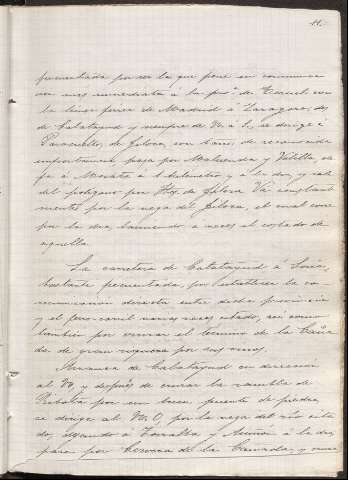 11.
frecuentada por ser la que pone en comunica
cion mas inmediata á la prov.ª de Teruel con
la linea ferrea de Madrid á Zaragoza, des
de Calatayud y siempre de N. á S., se dirige á
Paracuellos, de Jiloca, con baños, de reconocida
importancia, pasa por Maluenda y Velilla, de
ja á Morata á 1 kilometro y á la dra, y sale
del poligono por de Jiloca. Va constant
mente por la vega del Jiloca, el cual corre
por la dra, lamiendo á veces el costado de
aquella.
La carretera de Calatayud á Soria,
bastante frecuentada, por establecer la co-
municacion directa entre dicha provincia
y el ferro-carril varias veces citado, así como
tambien por cruzar el termino de la Caña
da de gran riqueza por sus vinos.
Arranca de Calatayud en direccion
al NO, y después de cruzar la rambla de
Ribota por un buen puente de piedra,
se dirige al N.O, por la vega del rio cita
do, dejando á Torralba y Aniñon á la dra,
pasa por Cervera de la Cañada, y